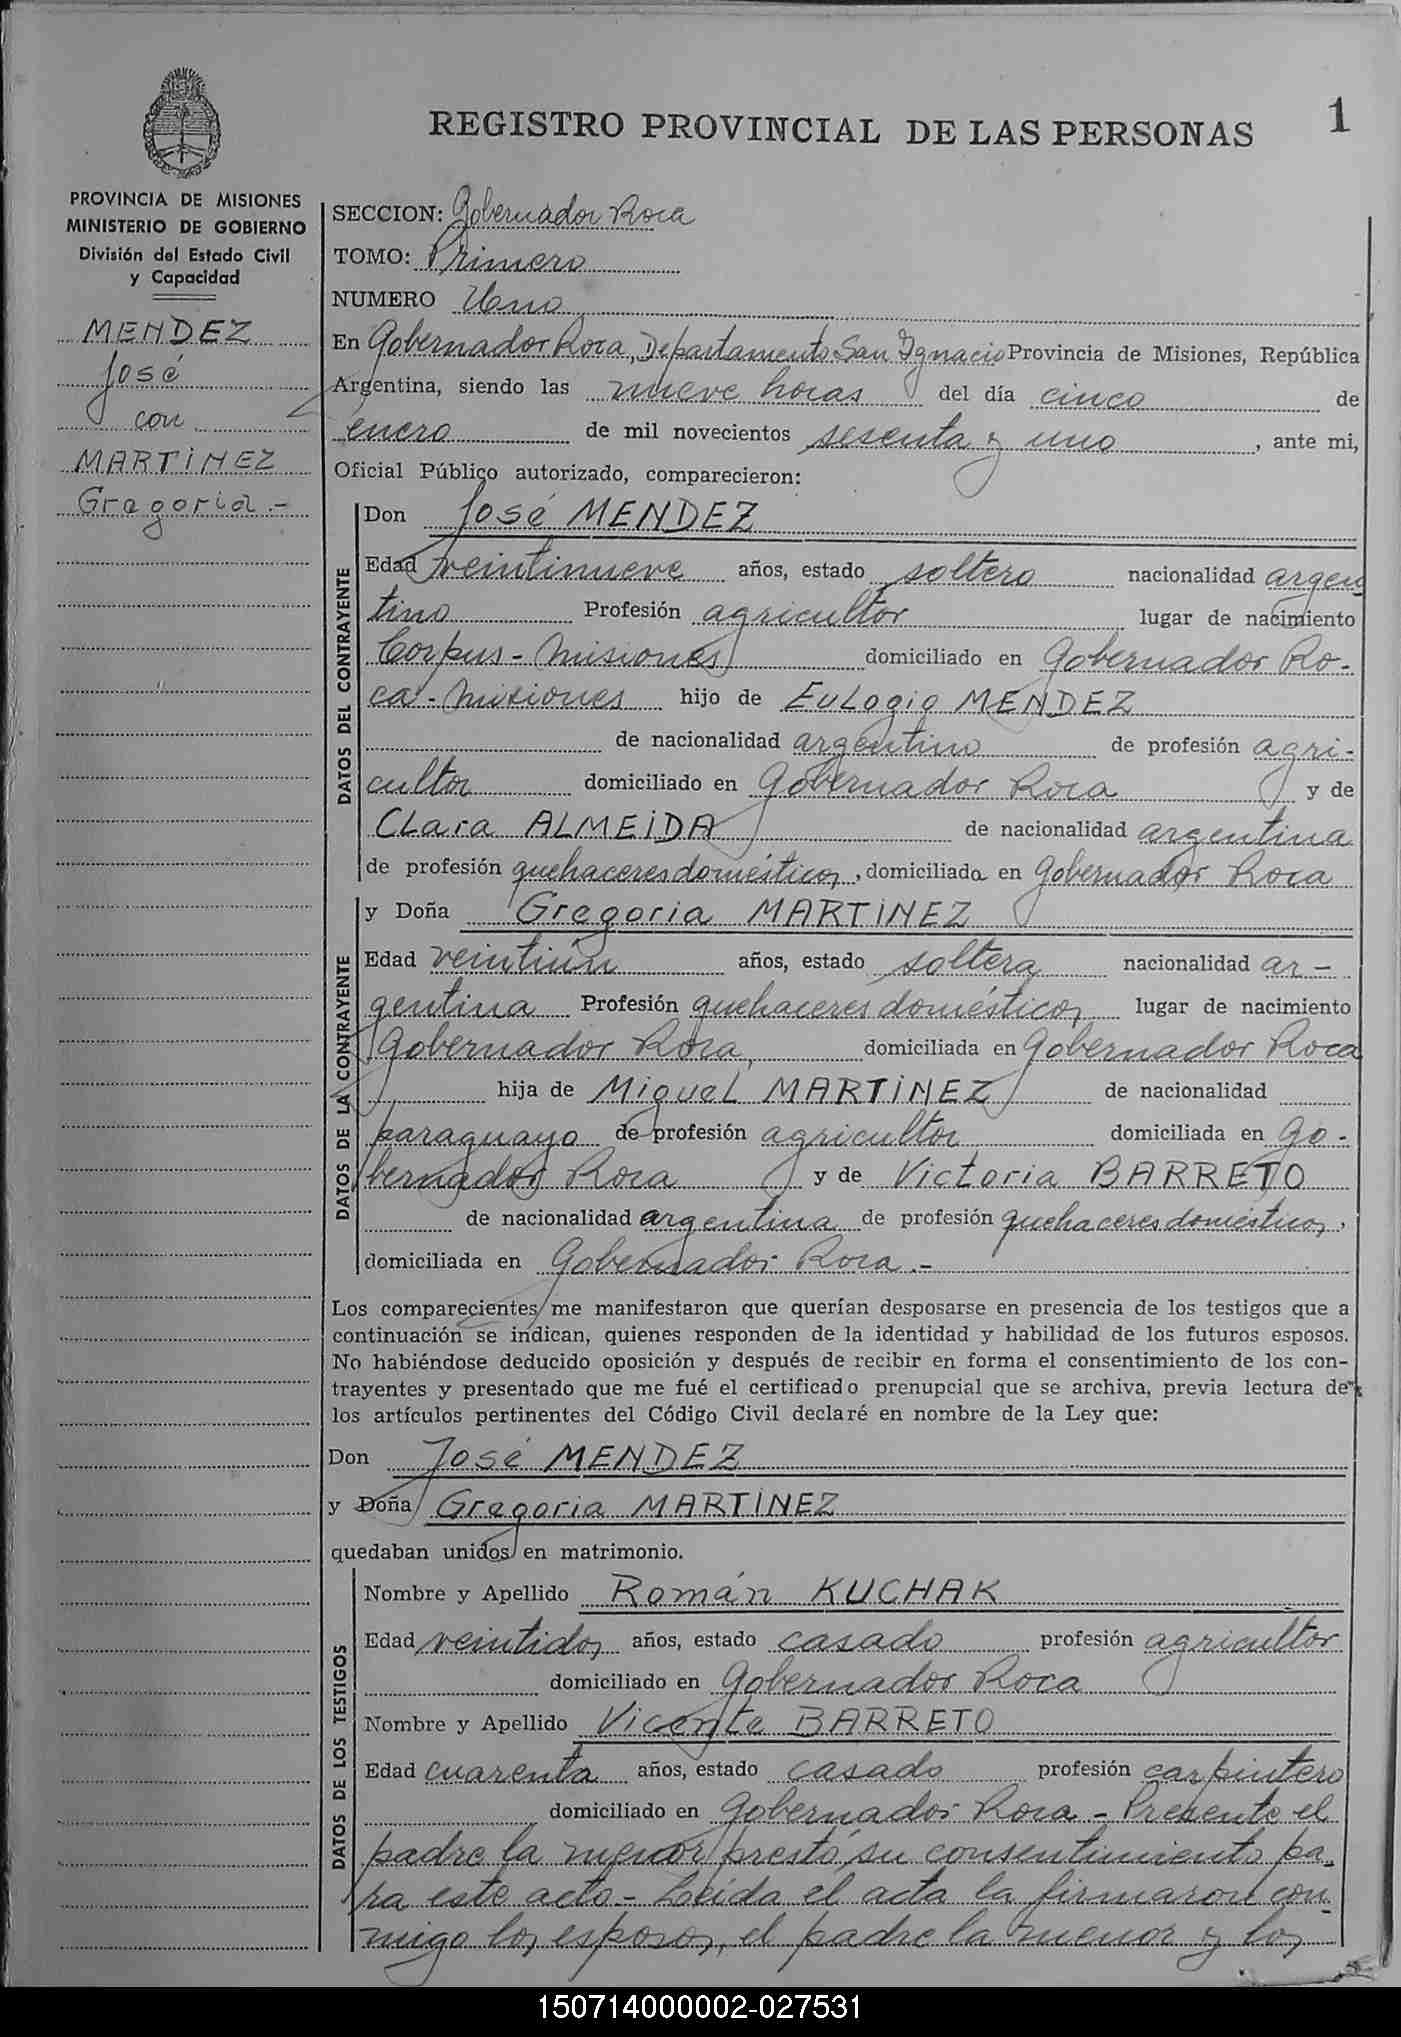 REGISTRO PROVINCIAL DE LAS PERSONAS
1
PROVINCIA DE MISIONES
MINISTERIO DE GOBIERNO
División del Estado Civil
y Capacidad
MENDEZ
José
con
MARTINEZ
Gregoria.-
SECCION: Gobernador Roca
TOMO: Primero
NUMERO Uno
En Gobernador Roca, Departamento San Ignacio Provincia de Misiones, República
Argentina, siendo las nueve horas del día cinco de
enero de mil novecientos sesenta y uno, ante mi,
Oficial Público autorizado, comparecieron:
DATOS DEL CONTRAYENTE
Don José MENDEZ
Edad veintinueve años, estado soltero nacionalidad argen
tino Profesión agricultor lugar de nacimiento
Corpus - Misiones domiciliado en Gobernador Ro-
ca - Misiones hijo de Eulogio MENDEZ
de nacionalidad argentino de profesión agri-
cultor domiciliado en Gobernador Roca y de
Clara ALMEIDA de nacionalidad argentina
de profesión quehaceres domésticos, domiciliada en Gobernador Roca
DATOS DE LA CONTRAYENTE
y Doña Gregoria MARTINEZ
Edad veintiún años, estado soltera nacionalidad ar-
gentina Profesión quehaceres domésticos lugar de nacimiento
Gobernador Roca, domiciliada en Gobernador Roca
hija de Miguel MARTINEZ de nacionalidad
paraguayo de profesión agricultor domiciliada en Go-
bernador Roca y de Victoria BARRETO
de nacionalidad argentina de profesión quehaceres domésticos,
domiciliada en Gobernador Roca.-
Los comparecientes me manifestaron que querían desposarse en presencia de los testigos que a
continuación se indican, quienes responden de la identidad y habilidad de los futuros esposos.
No habiéndose deducido oposición y después de recibir en forma el consentimiento de los con-
trayentes y presentado que me fué el certificado prenupcial que se archiva, previa lectura de
los artículos pertinentes del Código Civil declaré en nombre de la Ley que:
Don José MENDEZ
y Doña Gregoria MARTINEZ
quedaban unidos en matrimonio.
DATOS DE LOS TESTIGOS
Nombre y Apellido Román KUCHAK
Edad veintidos años, estado casado profesión agricultor
domiciliado en Gobernador Roca
Nombre y Apellido Vicente BARRETO
Edad cuarenta años, estado casado profesión carpintero
domiciliado en Gobernador Roca - Presente el
padre la menor prestó su consentimiento pa-
ra este acto - Leida el acta la firmaron con
migo los esposos, el padre la menor y los
150714000002-027531